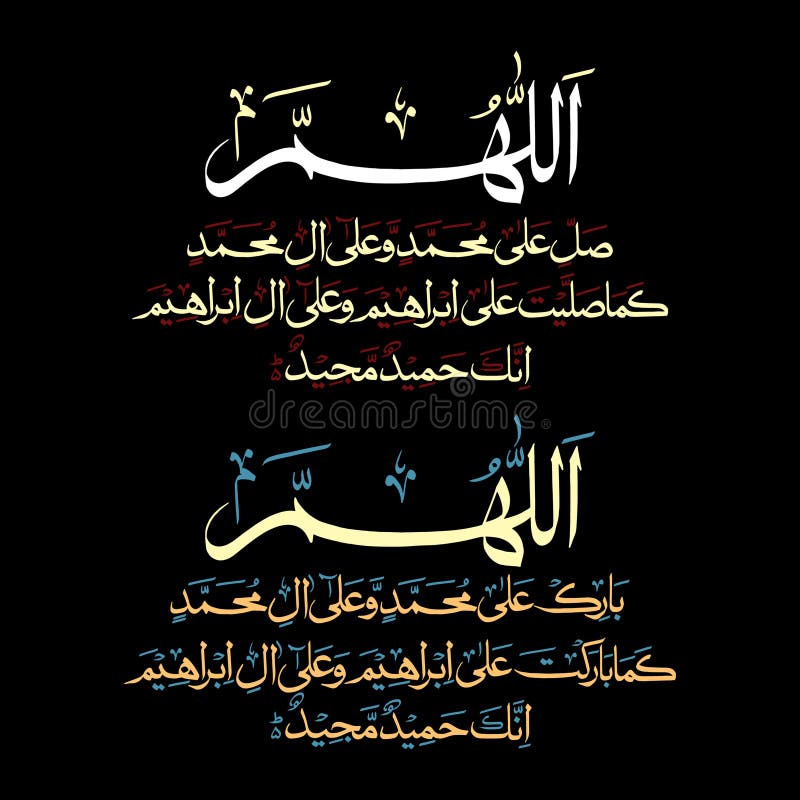 اَللّٰهُمَّ
صَلِّ عَلٰى مُحَمَّدٍ وَّعَلٰٓى اٰلِ مُحَمَّدٍ
كَمَا صَلَّيْتَ عَلٰٓى اِبْرَاهِيْمَ وَعَلٰٓى اٰلِ اِبْرَاهِيْمَ
اِنَّكَ حَمِيْدٌ مَّجِيْدٌ ؕ
dreamstime
اَللّٰهُمَّ
بَارِكْ عَلٰى مُحَمَّدٍ وَّعَلٰٓى اٰلِ مُحَمَّدٍ
كَمَا بَارَكْتَ عَلٰٓى اِبْرَاهِيْمَ وَعَلٰٓى اٰلِ اِبْرَاهِيْمَ
اِنَّكَ حَمِيْدٌ مَّجِيْدٌ ؕ